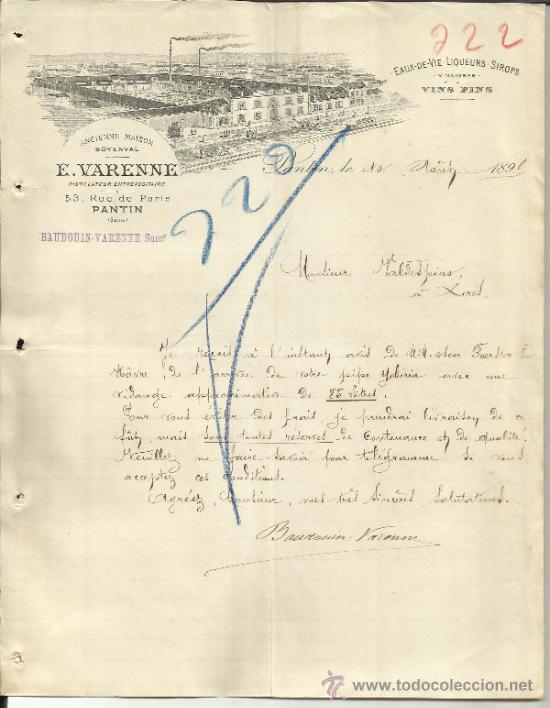 222
EAUX-DE-VIE LIQUEURS-SIROPS
VINAIGRES
VINS FINS
ANCIENNE MAISON
GOYENVAL
E. VARENNE
DISTILLATEUR-ENTREPOSITAIRE
53, Rue de Paris
PANTIN
(Seine)
BAUDOUIN-VARENNE, Succr
Pantin, le Août 189
220
Monsieur Valdespino,
à Xérès.
Je reçois à l'instant avis de M.M. Oscar Foerster
Hâvre, de l'arrivée de votre pipe avec une
vidange approximative de 85 litres.
Pour vous éviter des frais, je prendrai livraison de ce
fût, mais sous toutes réserves de contenance et de qualité.
Veuillez me faire savoir par télégramme si vous
acceptez ces conditions.
Agréez, Monsieur, mes très sincères salutations.
Baudouin-Varenne
todocoleccion
www.todocoleccion.net